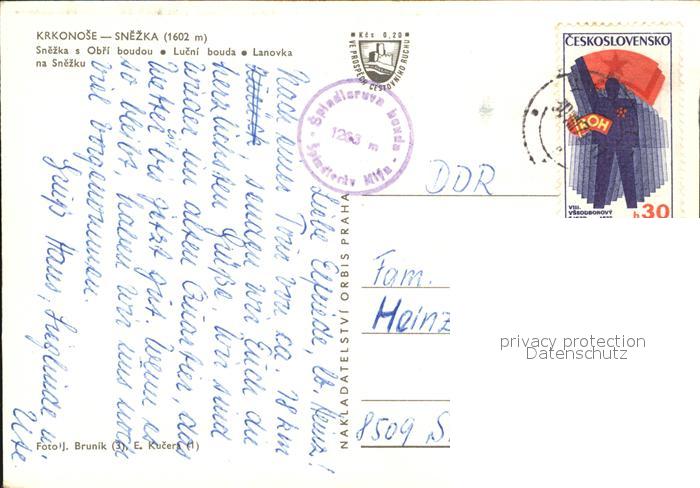 KRKONOŠE — SNĚŽKA (1602 m)
Sněžka s Obří boudou • Luční bouda • Lanovka
na Sněžku
Kčs 0,20
VE PROSPĚCH CESTOVNÍHO RUCHU
Špindlerova bouda
1208 m
Špindlerův Mlýn
ČESKOSLOVENSKO
ROH
VIII.
VŠEODBOROVÝ
h 30
Liebe Elfriede, lb. Heinz!
Nach einer Tour von ca. 18 km
senden wir Euch die
herzlichsten Grüße. Wir sind
wieder im alten Quartier, das
Wetter ist bis jetzt gut. Wenn es
so bleibt, haben wir uns noch
viel vorgenommen.
Gruß Hans, Sieglinde u.
Ute.
NAKLADATELSTVÍ ORBIS PRAHA
DDR
Fam.
Heinz
8509 S
Foto J. Bruník (3), E. Kučera (1)
privacy protection
Datenschutz